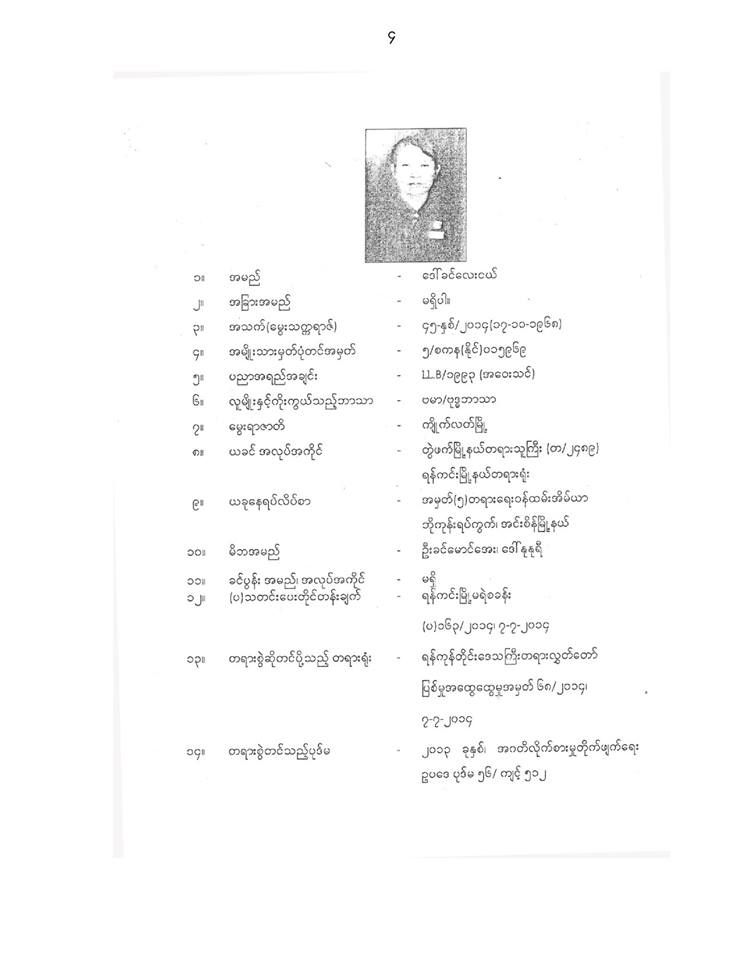 ၄
၁။ အမည် - ဒေါ်ခင်လေးငယ်
၂။ အခြားအမည် - မရှိပါ။
၃။ အသက်(မွေးသက္ကရာဇ်) - ၄၅-နှစ်/၂၀၁၄(၁၇-၁၀-၁၉၆၈)
၄။ အမျိုးသားမှတ်ပုံတင်အမှတ် - ၅/စကန(နိုင်)၀၁၅၉၆၉
၅။ ပညာအရည်အချင်း - LL.B/၁၉၉၃ (အဝေးသင်)
၆။ လူမျိုးနှင့်ကိုးကွယ်သည့်ဘာသာ - ဗမာ/ဗုဒ္ဓဘာသာ
၇။ မွေးရာဇာတိ - ကျိုက်လတ်မြို့
၈။ ယခင် အလုပ်အကိုင် - တွဲဖက်မြို့နယ်တရားသူကြီး (တ/၂၄၈၉)
ရန်ကင်းမြို့နယ်တရားရုံး
၉။ ယခုနေရပ်လိပ်စာ - အမှတ်(၅)တရားရေးဝန်ထမ်းအိမ်ယာ
ဘိုကုန်းရပ်ကွက်၊ အင်းစိန်မြို့နယ်
၁၀။ မိဘအမည် - ဦးခင်မောင်အေး၊ ဒေါ်နုနုရီ
၁၁။ ခင်ပွန်း အမည်၊ အလုပ်အကိုင် - မရှိ
၁၂။ (ပ)သတင်းပေးတိုင်တန်းချက် - ရန်ကင်းမြို့မရဲစခန်း
(ပ)၁၆၃/၂၀၁၄၊ ၇-၇-၂၀၁၄
၁၃။ တရားစွဲဆိုတင်ပို့သည့် တရားရုံး - ရန်ကုန်တိုင်းဒေသကြီးတရားလွှတ်တော်
ပြစ်မှုအထွေထွေမှုအမှတ် ၆၈/၂၀၁၄၊
၇-၇-၂၀၁၄
၁၄။ တရားစွဲတင်သည့်ပုဒ်မ - ၂၀၁၃ ခုနှစ်၊ အဂတိလိုက်စားမှုတိုက်ဖျက်ရေး
ဥပဒေ ပုဒ်မ ၅၆/ ကျင့် ၅၁၂